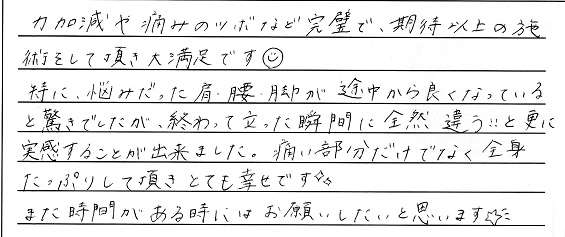 力加減や痛みのツボなど完璧で、期待以上の施
術をして頂き大満足です☺
特に、悩みだった肩・腰・脚が途中から良くなっている
と驚きでしたが、終わって立った瞬間に全然違う!!と更に
実感することが出来ました。痛い部分だけでなく全身
たっぷりして頂きとても幸せです☆
また時間がある時にはお願いしたいと思います☆